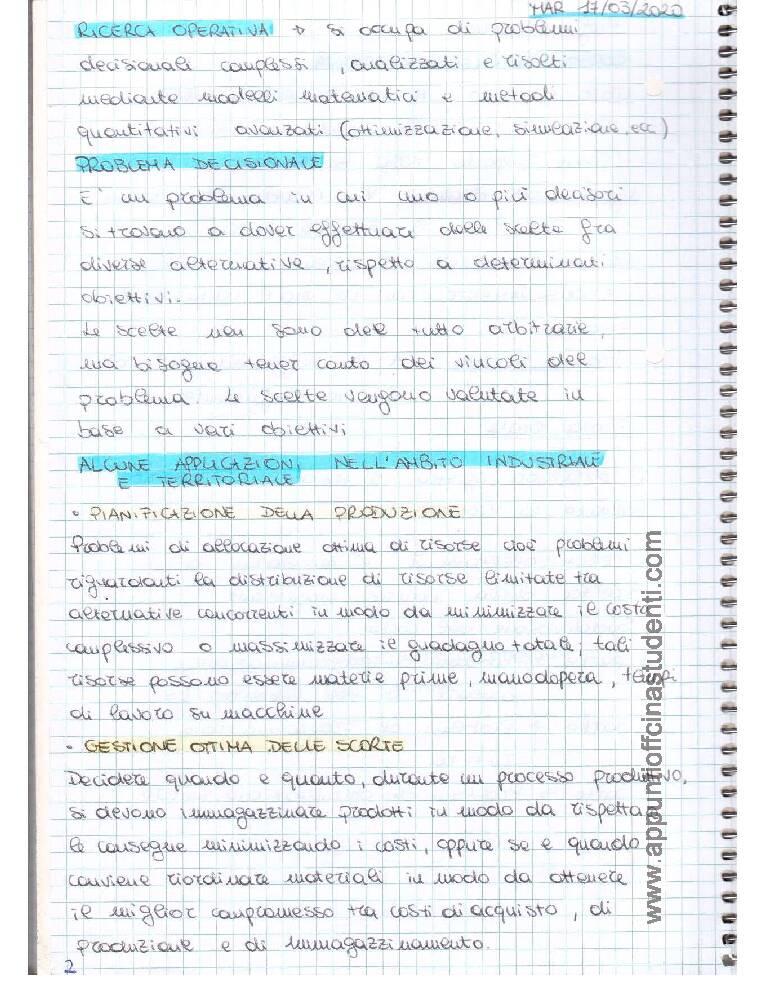 MAR 17/03/2020
RICERCA OPERATIVA → si occupa di problemi
decisionali complessi, analizzati e risolti
mediante modelli matematici e metodi
quantitativi avanzati (ottimizzazione, simulazione, ecc)
PROBLEMA DECISIONALE
E' un problema in cui uno o più decisori
si trovano a dover effettuare delle scelte fra
diverse alternative, rispetto a determinati
obiettivi.
Le scelte non sono del tutto arbitrarie,
ma bisogna tener conto dei vincoli del
problema. Le scelte vengono valutate in
base a vari obiettivi
ALCUNE APPLICAZIONI NELL'AMBITO INDUSTRIALE
E TERRITORIALE
• PIANIFICAZIONE DELLA PRODUZIONE
Problemi di allocazione ottima di risorse cioè problemi
riguardanti la distribuzione di risorse limitate tra
alternative concorrenti in modo da minimizzare il costo
complessivo o massimizzare il guadagno totale; tali
risorse possono essere materie prime, manodopera, tempi
di lavoro su macchine
• GESTIONE OTTIMA DELLE SCORTE
Decidere quando e quanto, durante un processo produttivo,
si devono immagazzinare prodotti in modo da rispettare
le consegne minimizzando i costi, oppure se e quando
conviene riordinare materiali in modo da ottenere
il miglior compromesso tra costi di acquisto, di
produzione e di immagazzinamento.
2
www.appuntiofficinastudenti.com